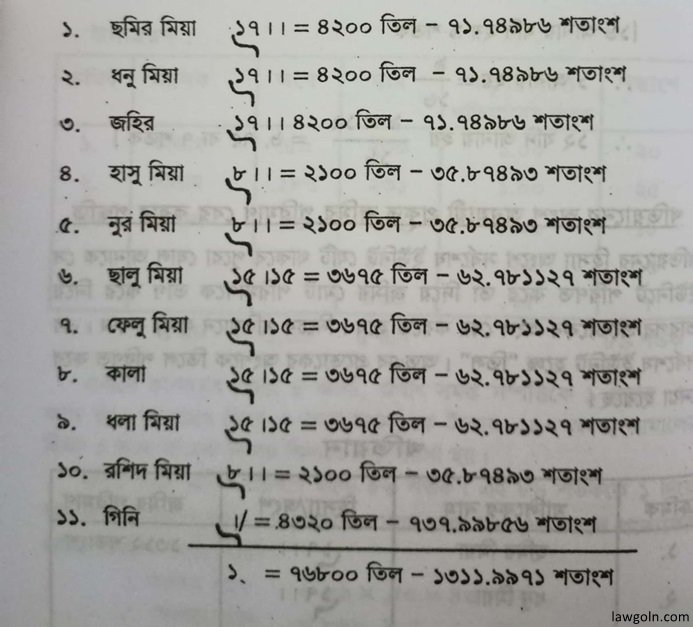 ১. ছমির মিয়া ১৭।। = ৪২০০ তিল – ৭১.৭৪৯৮৬ শতাংশ
২. ধনু মিয়া ১৭।। = ৪২০০ তিল – ৭১.৭৪৯৮৬ শতাংশ
৩. জহির ১৭।। ৪২০০ তিল – ৭১.৭৪৯৮৬ শতাংশ
৪. হাসু মিয়া ৮।। = ২১০০ তিল – ৩৫.৮৭৪৯৩ শতাংশ
৫. নূর মিয়া ৮।। = ২১০০ তিল – ৩৫.৮৭৪৯৩ শতাংশ
৬. ছানু মিয়া ১৫।১৫ = ৩৬৭৫ তিল – ৬২.৭৮১১২৭ শতাংশ
৭. ফেনু মিয়া ১৫।১৫ = ৩৬৭৫ তিল – ৬২.৭৮১১২৭ শতাংশ
৮. কালা ১৫।১৫ = ৩৬৭৫ তিল – ৬২.৭৮১১২৭ শতাংশ
৯. ধলা মিয়া ১৫।১৫ = ৩৬৭৫ তিল – ৬২.৭৮১১২৭ শতাংশ
১০. রশিদ মিয়া ৮।। = ২১০০ তিল – ৩৫.৮৭৪৯৩ শতাংশ
১১. গিনি ৷/ = ৪৩২০ তিল – ৭৩৭.৯৯৮৫৬ শতাংশ
১. = ৭৬৮০০ তিল – ১৩১১.৯৯৭১ শতাংশ
lawgoln.com